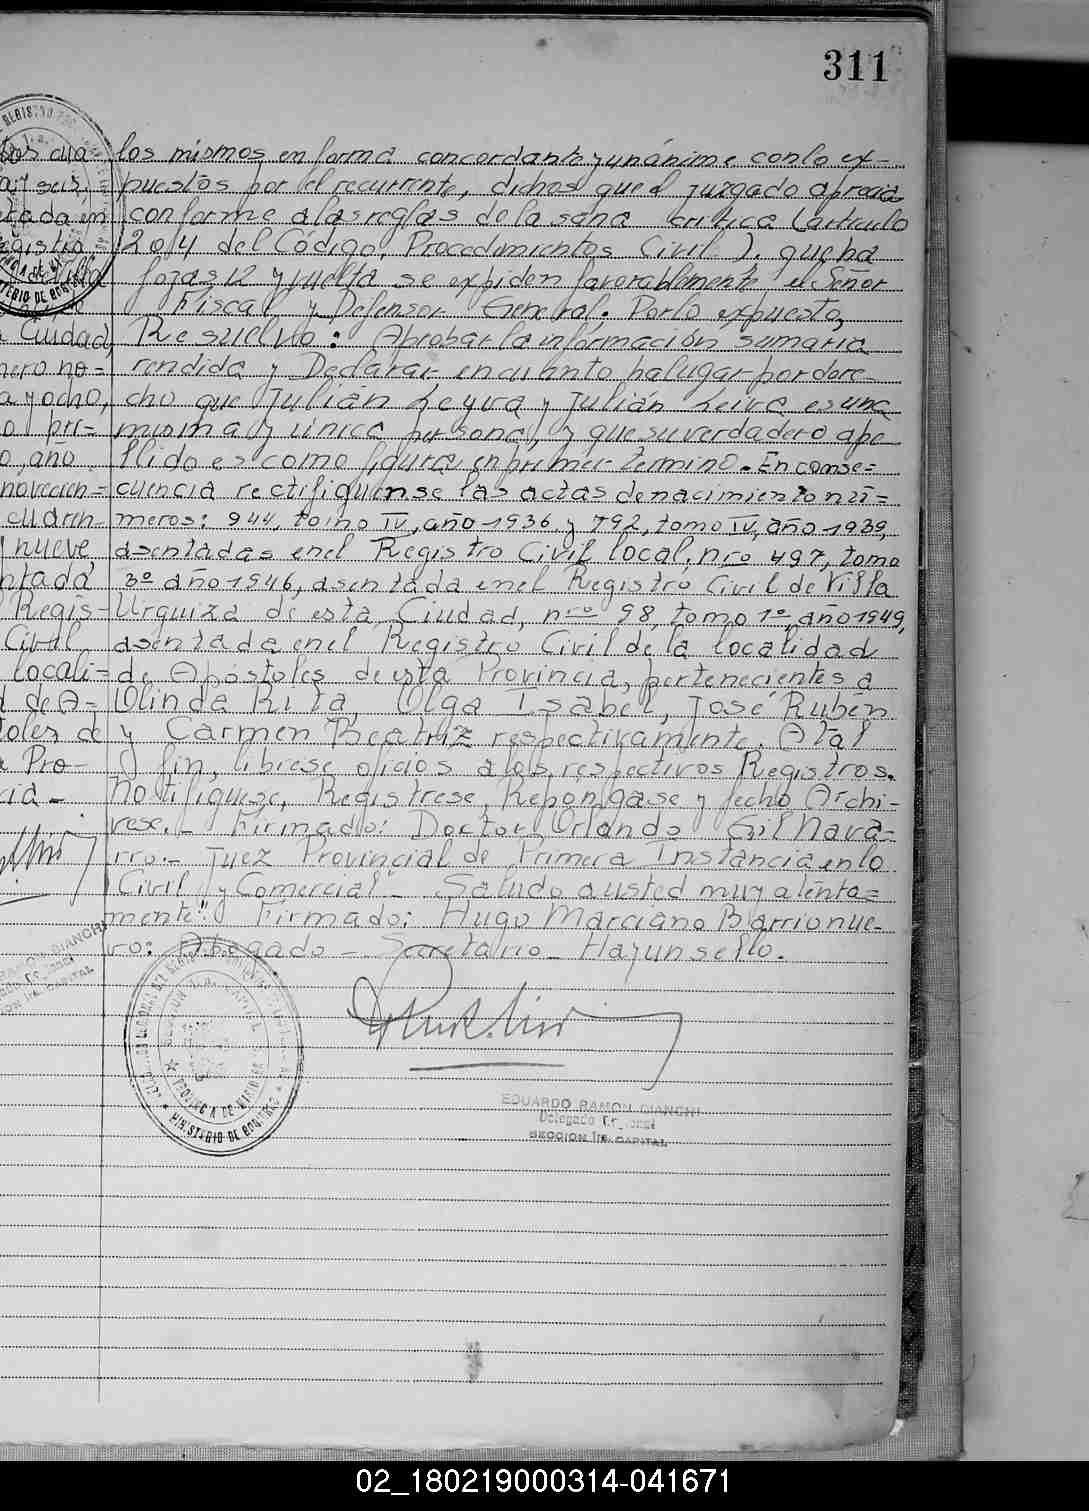 311
los mismos en forma concordante y unánime con lo ex-
puestos por el recurrente, dichos que el Juzgado aprecia
conforme a las reglas de la sana crítica (artículo
204 del Código, Procedimientos Civil), que ha
fojas 12 y vuelta se expiden favorablemente el Señor
Fiscal y Defensor General. Por lo expuesto,
Resuelvo: Aprobar la información sumaria
rendida y Declarar, en cuanto ha lugar por dere-
cho que Julián Leyva y Julián Leiva es una
misma y única persona, y que su verdadero ape-
llido es como figura en primer termino. En conse=
cuencia rectifiquense las actas de nacimiento nú=
meros: 944, tomo IV, año 1936 y 792, tomo IV, año 1939,
asentadas en el Registro Civil local, nro 497, tomo
3º año 1946, asentada en el Registro Civil de Villa
Urquiza de esta Ciudad, nro 98, tomo 1º, año 1949,
asentada en el Registro Civil de la localidad
de Apóstoles de esta Provincia, pertenecientes a
Olinda Rita, Olga Isabel, José Rubén
y Carmen Beatriz respectivamente. A tal
fin, librese oficios a los respectivos Registros.
Notifiquese, Registrese, Repongase y fecho Archi-
vese.- Firmado: Doctor Orlando Gil Nava=
rro.- Juez Provincial de Primera Instancia en lo
Civil y Comercial"- Saludo a usted muy atenta=
mente". Firmado: Hugo Marciano Barrionue-
vo: Abogado - Secretario - Hay un sello.
EDUARDO RAMON CIANCHI
Delegado
SECCION 1ra. CAPITAL
Ciudad,
mero no=
a y ocho,
año
novecien=
cuaren-
nueve
ntada
Regis-
Civil
locali=
d de A=
toles de
Pro-
cia-
PROVINCIA DE MISIONES
MINISTERIO DE GOBIERNO
02_180219000314-041671